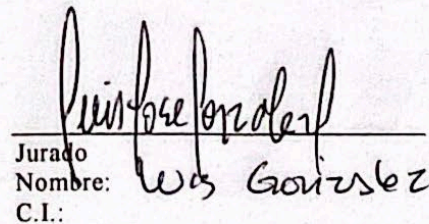 Luis Jose Gonzalez
Jurado
Nombre: Luis Gonzalez
C.I.: